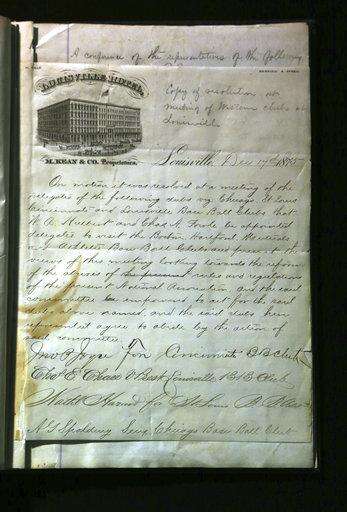 A conference of the representatives of the following
LOUISVILLE HOTEL
M. KEAN & CO. Proprietors.
Copy of resolution at
meeting of Western clubs at
Louisville
Louisville, Dec 17th 1875
On motion it was resolved at a meeting of the
delegates of the following clubs viz Chicago St Louis
Cincinnati and Louisville Base Ball Clubs that
W. A. Hulbert and Chas A. Fowle be appointed
delegates to meet the Boston Hartford Mutuals
and Athletic Base Ball Clubs and present the
views of this meeting looking towards the reform
of the abuses of the rules and regulations
of the present National Association, and the said
committee be empowered to act for the said
clubs at our annual, and the said clubs here
represented agree to abide by the action of
said committee.
Jno. P. Joyce For Cincinnati B.B. Club
Chas E. Chase V Prest Louisville B B Club
for St Louis B. B. Club
A G Spalding Secy Chicago Base Ball Club